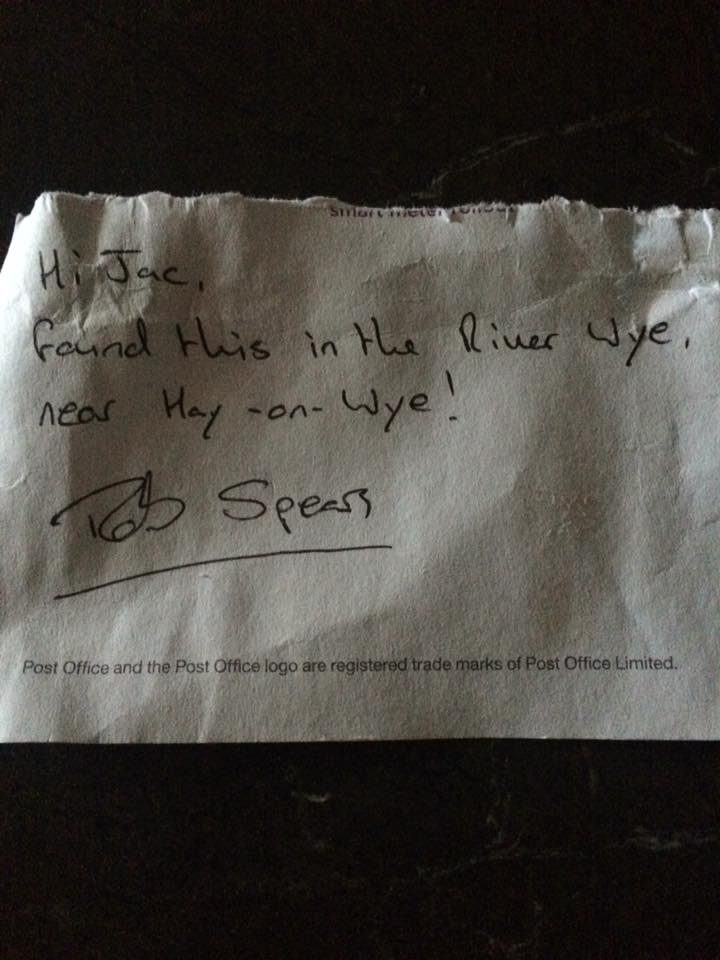 smart meter rollou
Hi Jac,
found this in the River Wye,
near Hay-on-Wye!
Rob Spears
Post Office and the Post Office logo are registered trade marks of Post Office Limited.